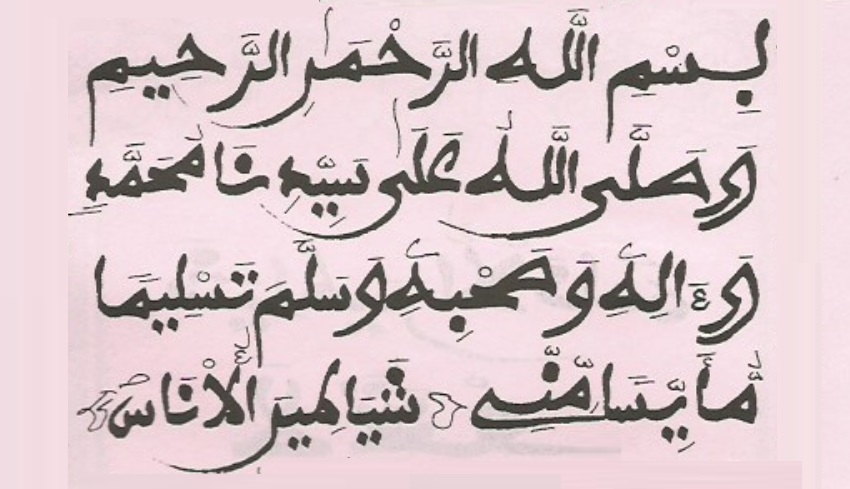 بِسْمِ اللَّهِ الرَّحْمَٰنِ الرَّحِيمِ
وَصَلَّى اللَّهُ عَلَى سَيِّدِنَا مُحَمَّدٍ
وَءَالِهِ وَصَحْبِهِ وَسَلَّمَ تَسْلِيمَا
مُّأَيِّسَا مِّنِّي شَيَاطِينَ الْأُنَاسْ